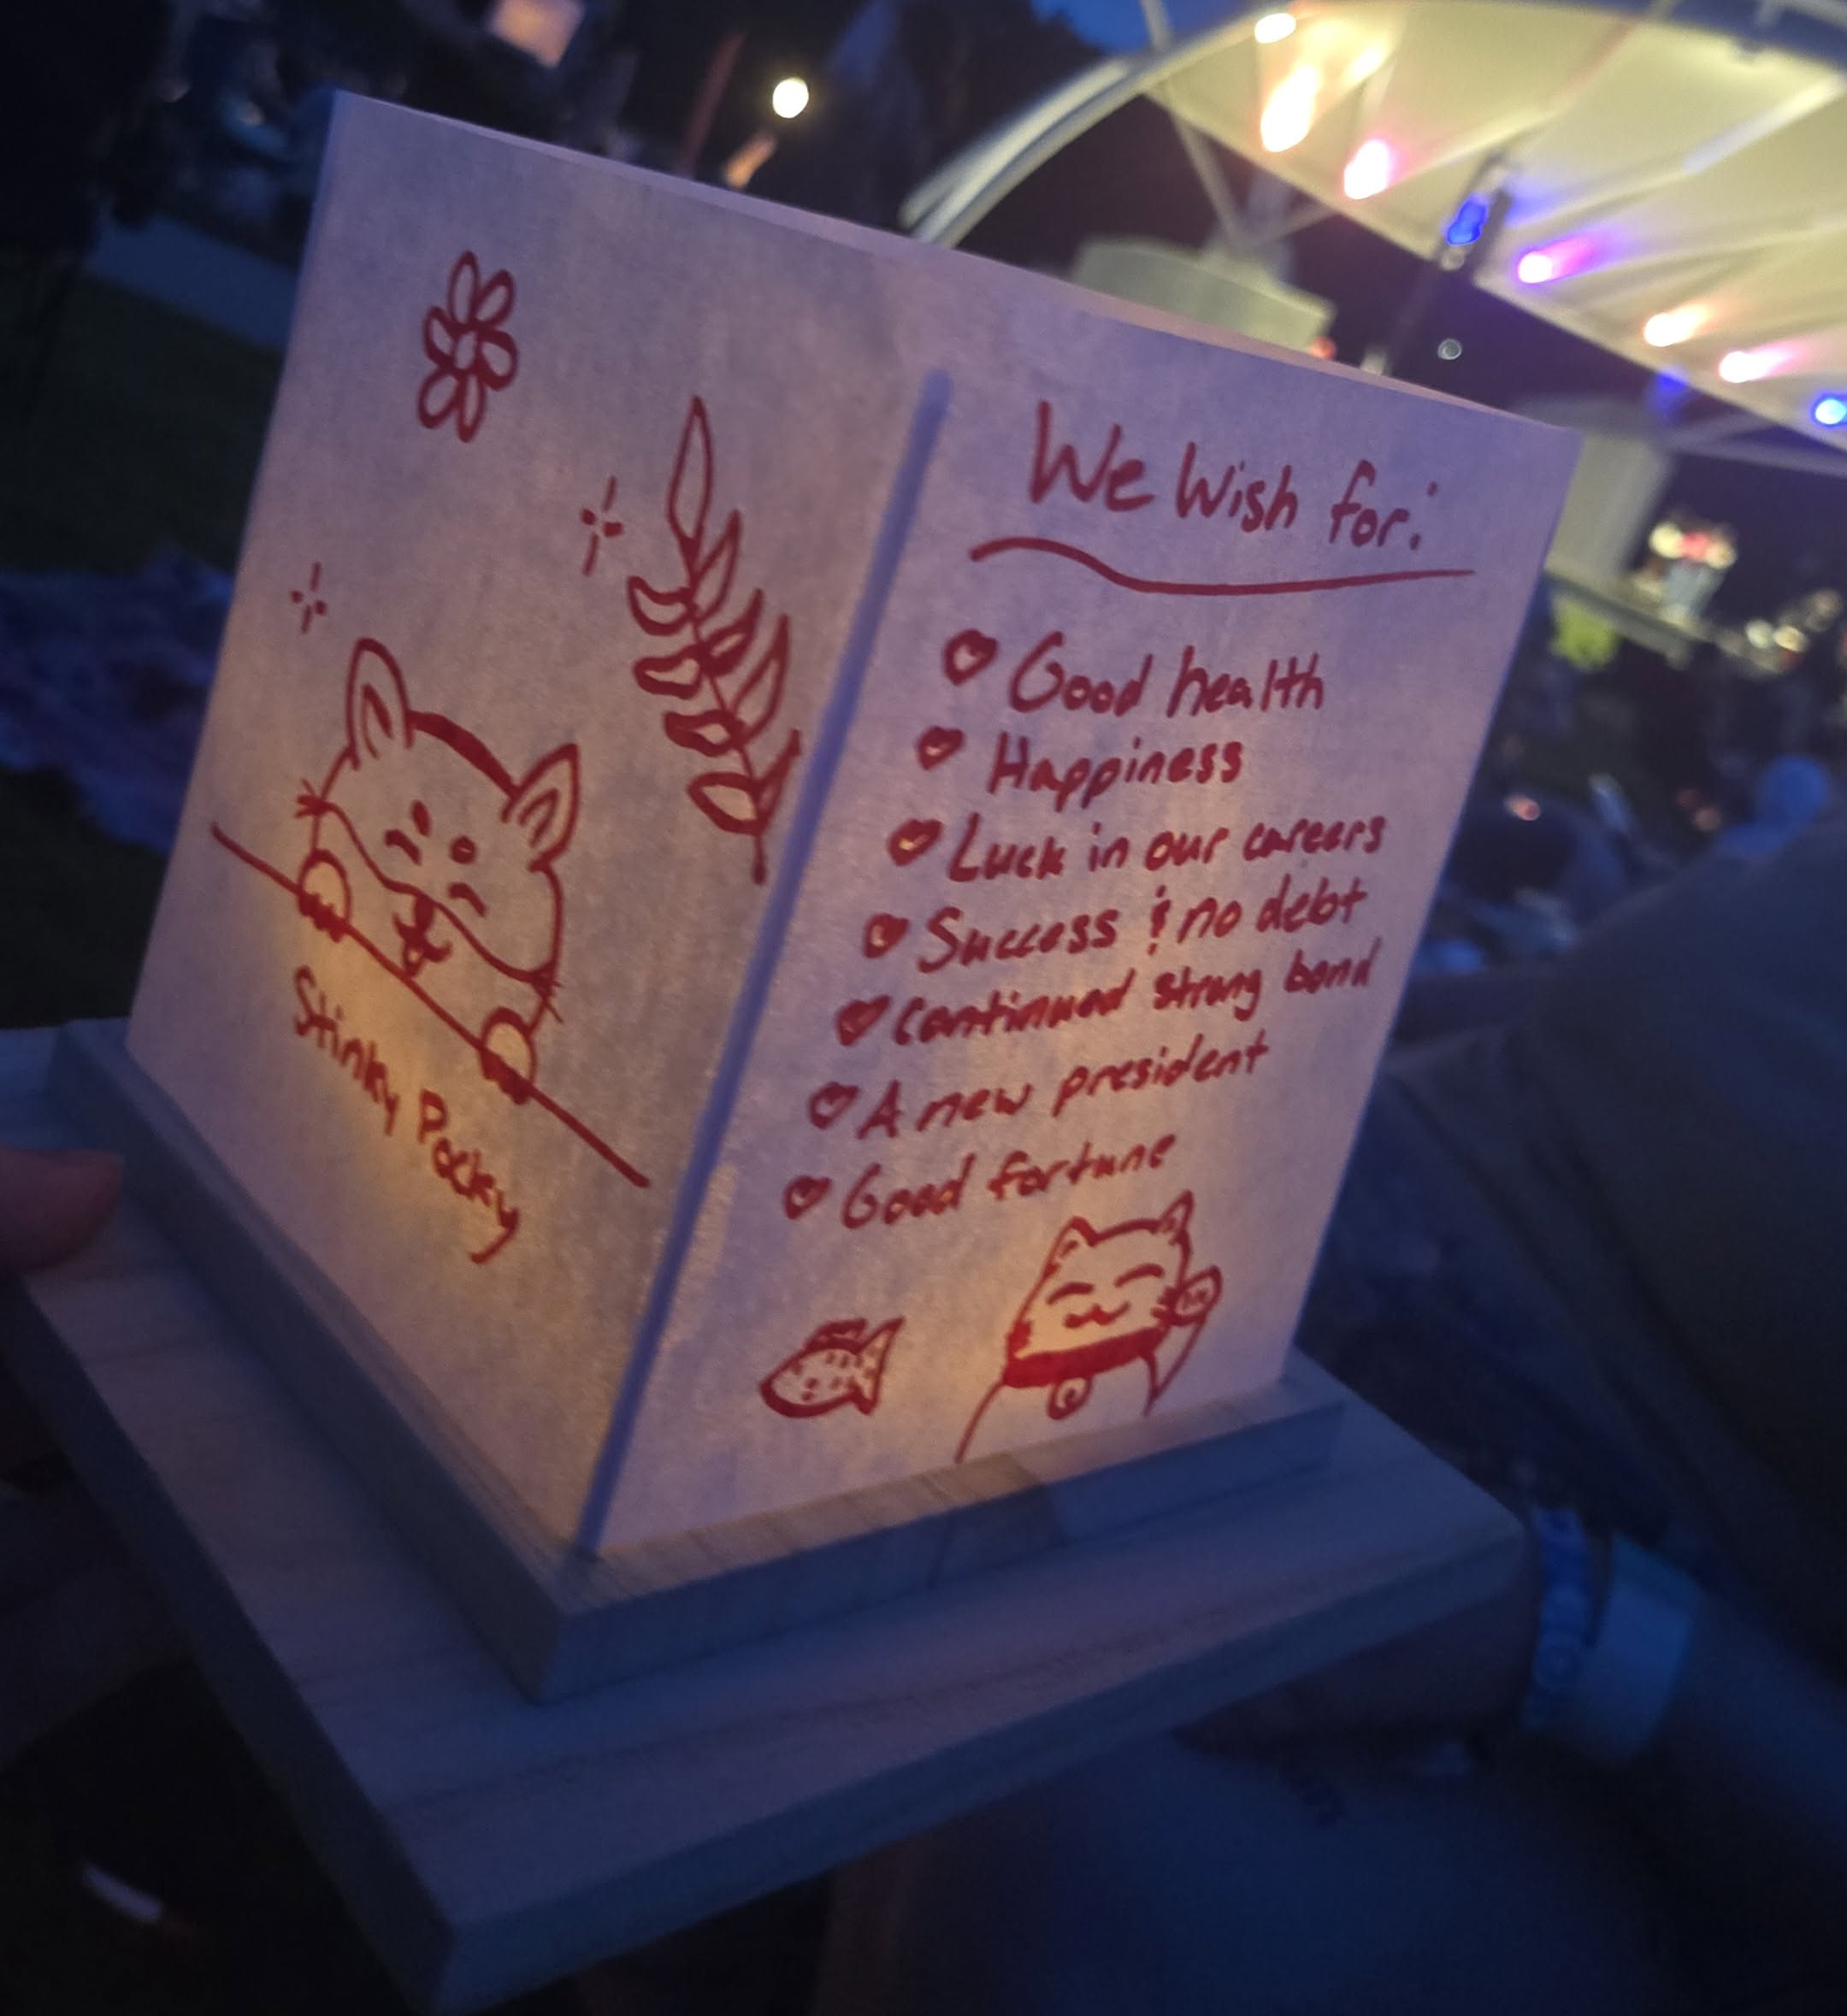 Stinky Pocky
We Wish for:
Good health
Happiness
Luck in our careers
Success & no debt
Continued strong bond
A new president
Good fortune